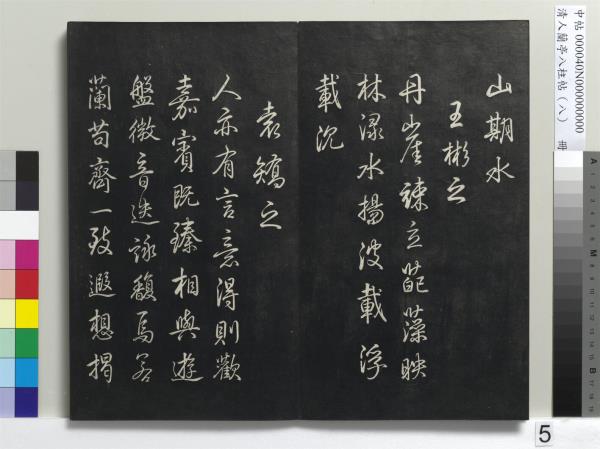 山期水
王彬之
丹崖竦立葩藻映
林渌水揚波載浮
載沉
袁矯之
人亦有言意得則歡
嘉賓既臻相與遊
盤微音迭詠馥焉若
蘭苟齊一致遐想揭
中帖 000040N000000000
清人蘭亭八柱帖（八） 冊
5